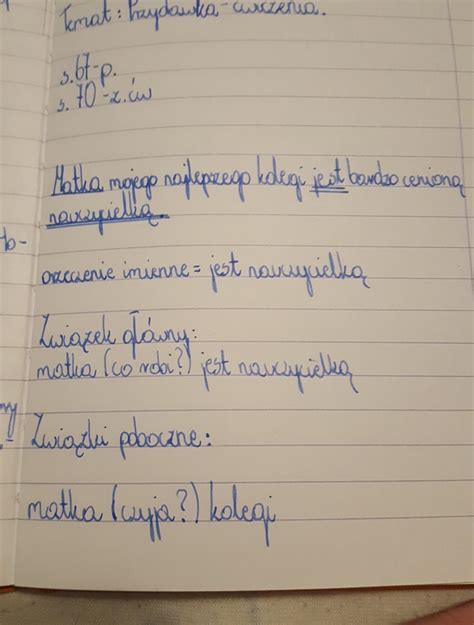 Temat: Przydawka - ćwiczenia.
s. 67 - p.
s. 70 - z. ćw
Matka mojego najlepszego kolegi jest bardzo cenioną
nauczycielką.
to -
orzeczenie imienne = jest nauczycielką
Związek główny:
matka (co robi?) jest nauczycielką
Związki poboczne:
matka (czyja?) kolegi